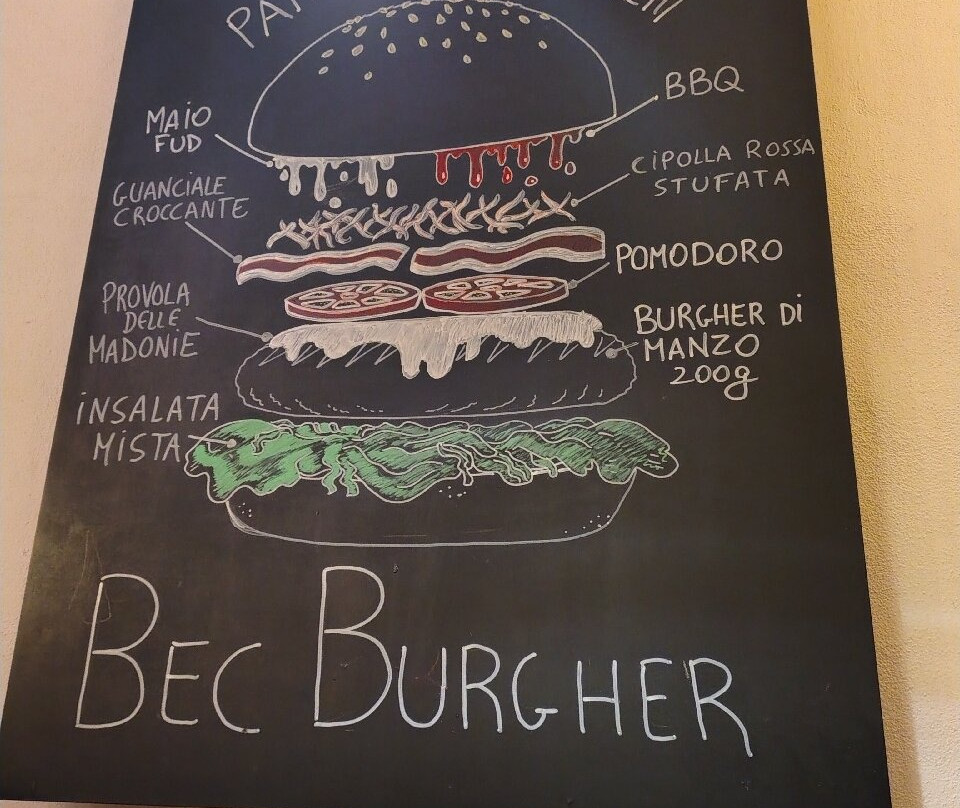 MAIO
FUD
BBQ
GUANCIALE
CROCCANTE
CIPOLLA ROSSA
STUFATA
POMODORO
PROVOLA
DELLE
MADONIE
BURGHER Di
MANZO
200g
iNSALATA
MISTA
BEC BURGHER